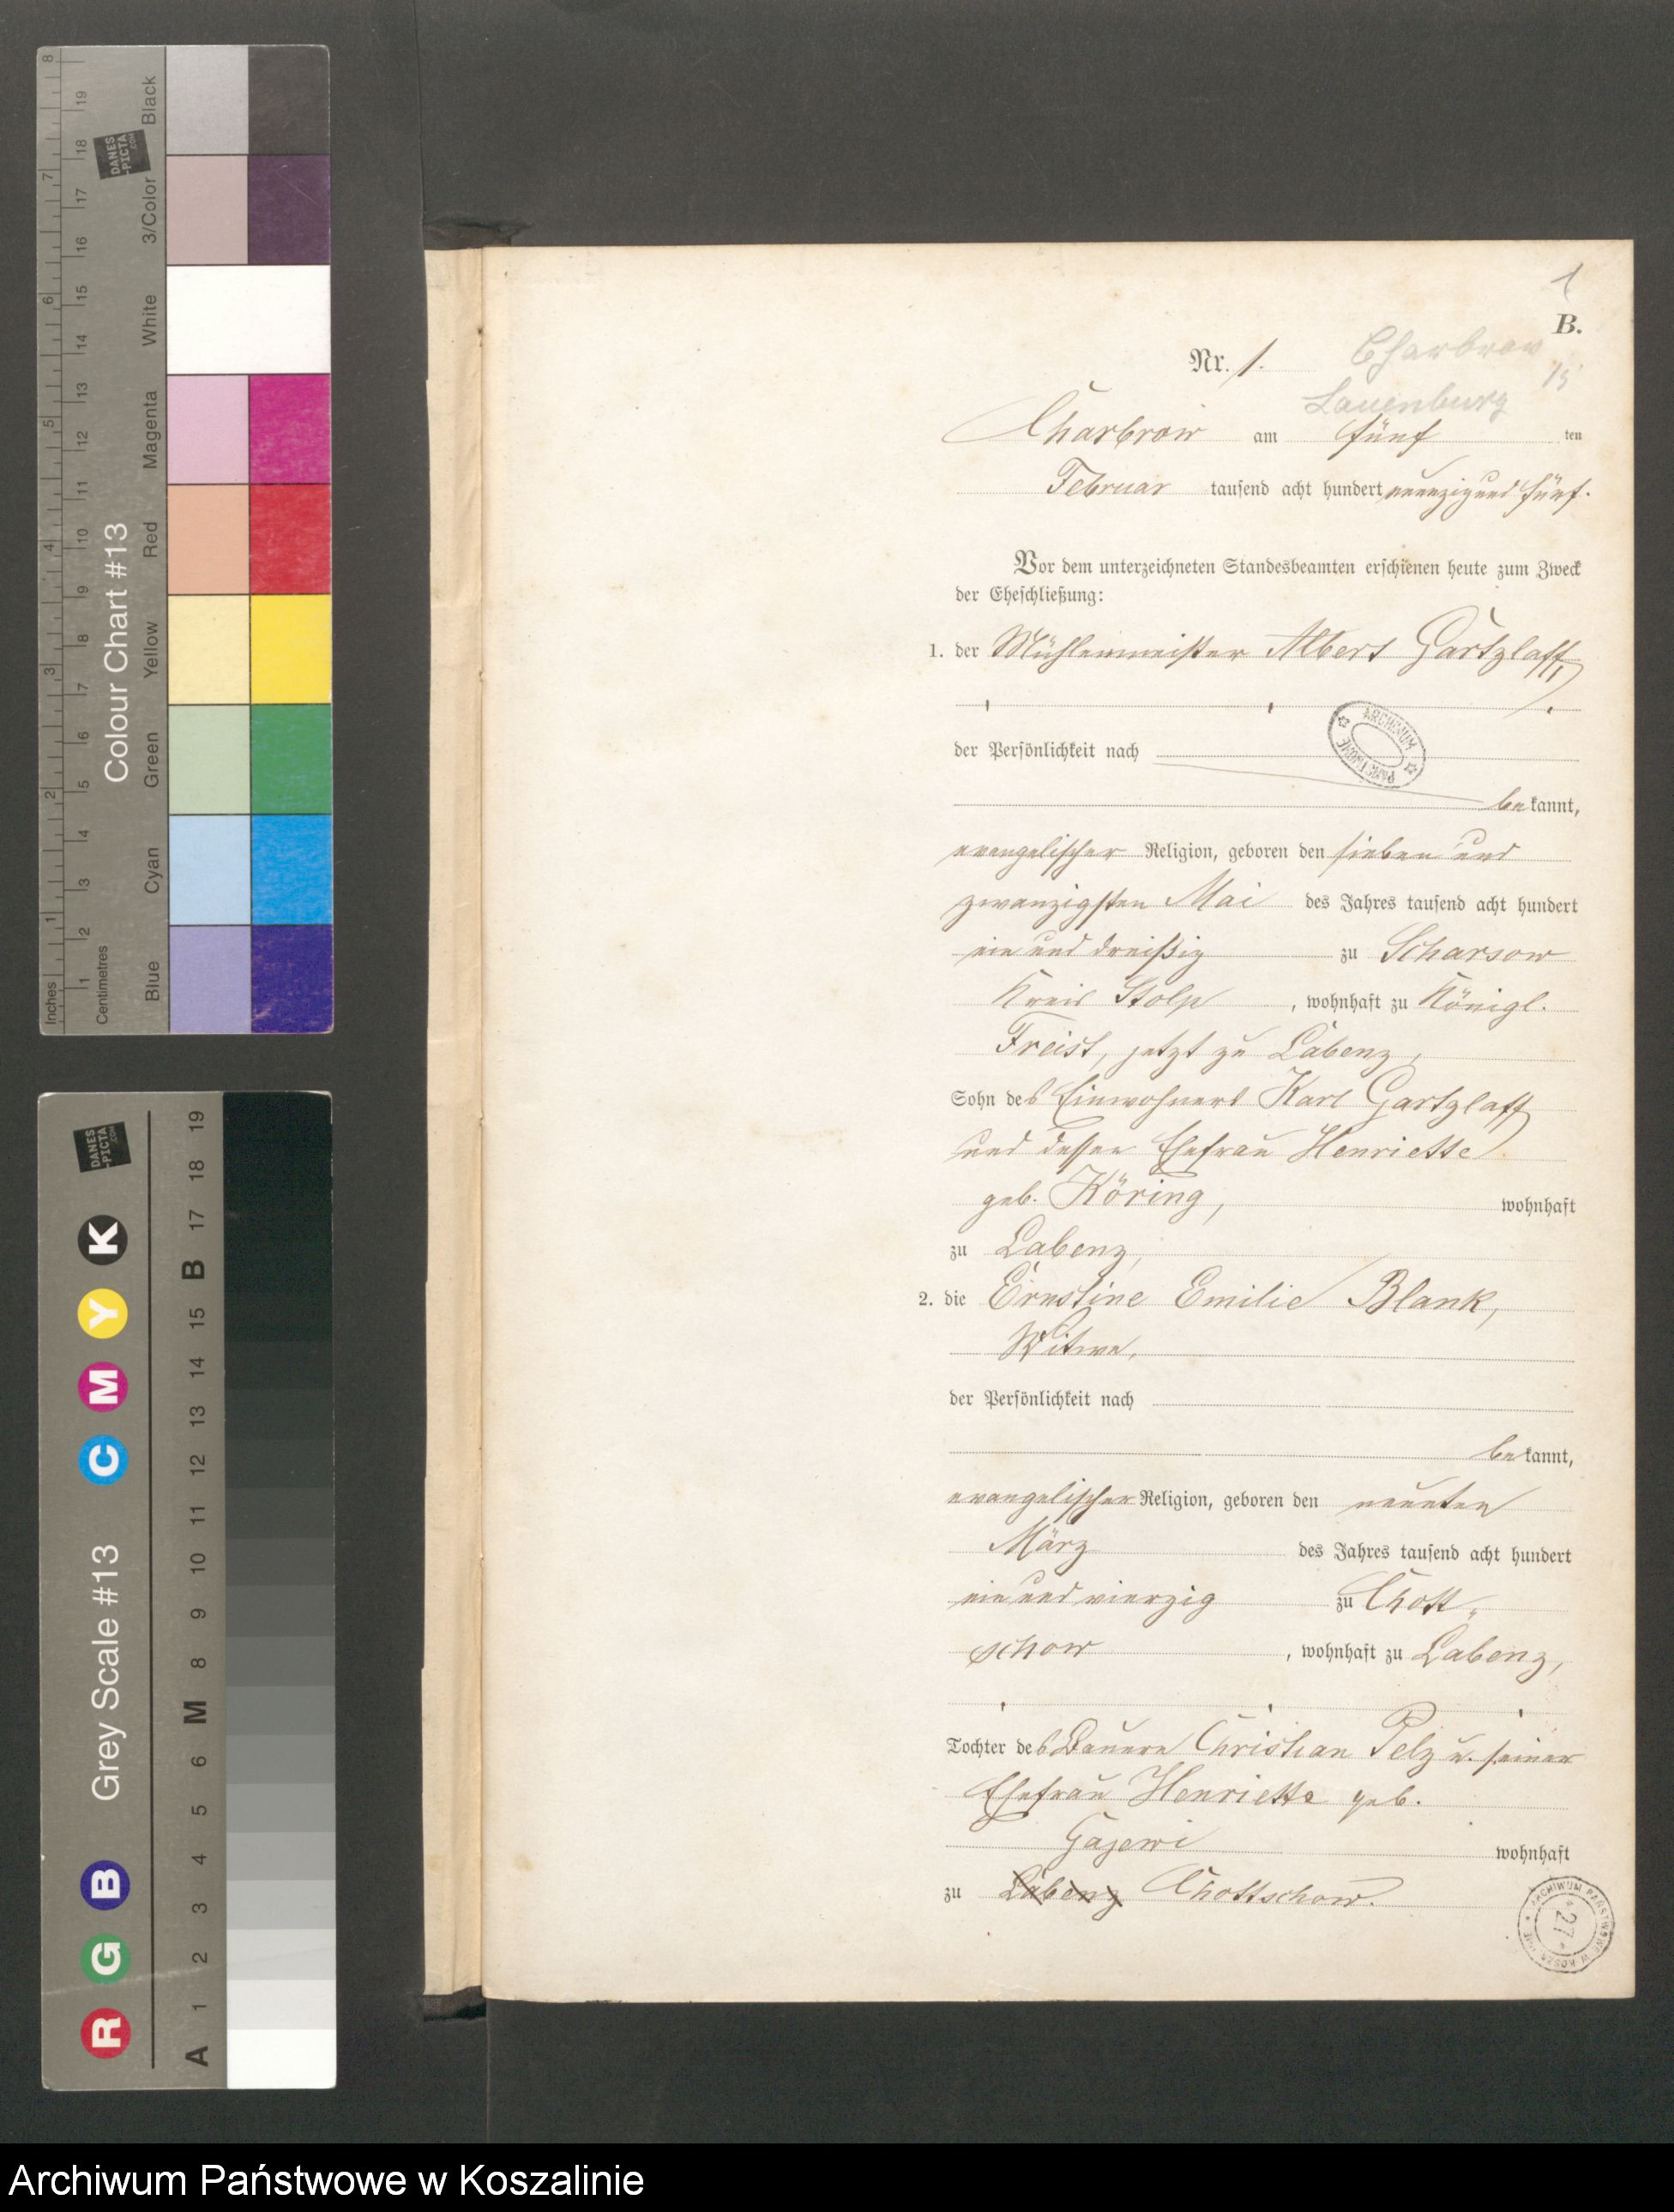 1
B.
Nr. 1.
Charbrow
15
Lauenburg
Charbrow am fünf ten
Februar tausend acht hundert neunzig und fünf.
Vor dem unterzeichneten Standesbeamten erschienen heute zum Zweck
der Eheschließung:
1. der Mühlenmeister Albert Gartzlaff,
der Persönlichkeit nach
bekannt,
evangelischer Religion, geboren den sieben und
zwanzigsten Mai des Jahres tausend acht hundert
ein und dreißig zu Scharsow
Kreis Stolp, wohnhaft zu Königl.
Freist, jetzt zu Labenz,
Sohn des Einwohners Karl Gartzlaff
und dessen Ehefrau Henriette
geb. Köring, wohnhaft
zu Labenz,
2. die Ernstine Emilie Blank,
Witwe,
der Persönlichkeit nach
bekannt,
evangelischer Religion, geboren den neunten
März des Jahres tausend acht hundert
ein und vierzig zu Chott-
schow, wohnhaft zu Labenz,
Tochter des Bauern Christian Pelz u. seiner
Ehefrau Henriette geb.
Gajewi wohnhaft
zu Labenz Chottschow.
ARCHIWUM PAŃSTWOWE W KOSZALINIE
27
Inches
Centimetres
1 2 3 4 5 6 7 8
1 2 3 4 5 6 7 8 9 10 11 12 13 14 15 16 17 18 19
Colour Chart #13
Blue Cyan Green Yellow Red Magenta White 3/Color Black
DANES
-PICTA
.COM
Grey Scale #13
R G B C M Y K
A 1 2 3 4 5 6 M 8 9 10 11 12 13 14 15 B 17 18 19
DANES
-PICTA
.COM
Archiwum Państwowe w Koszalinie